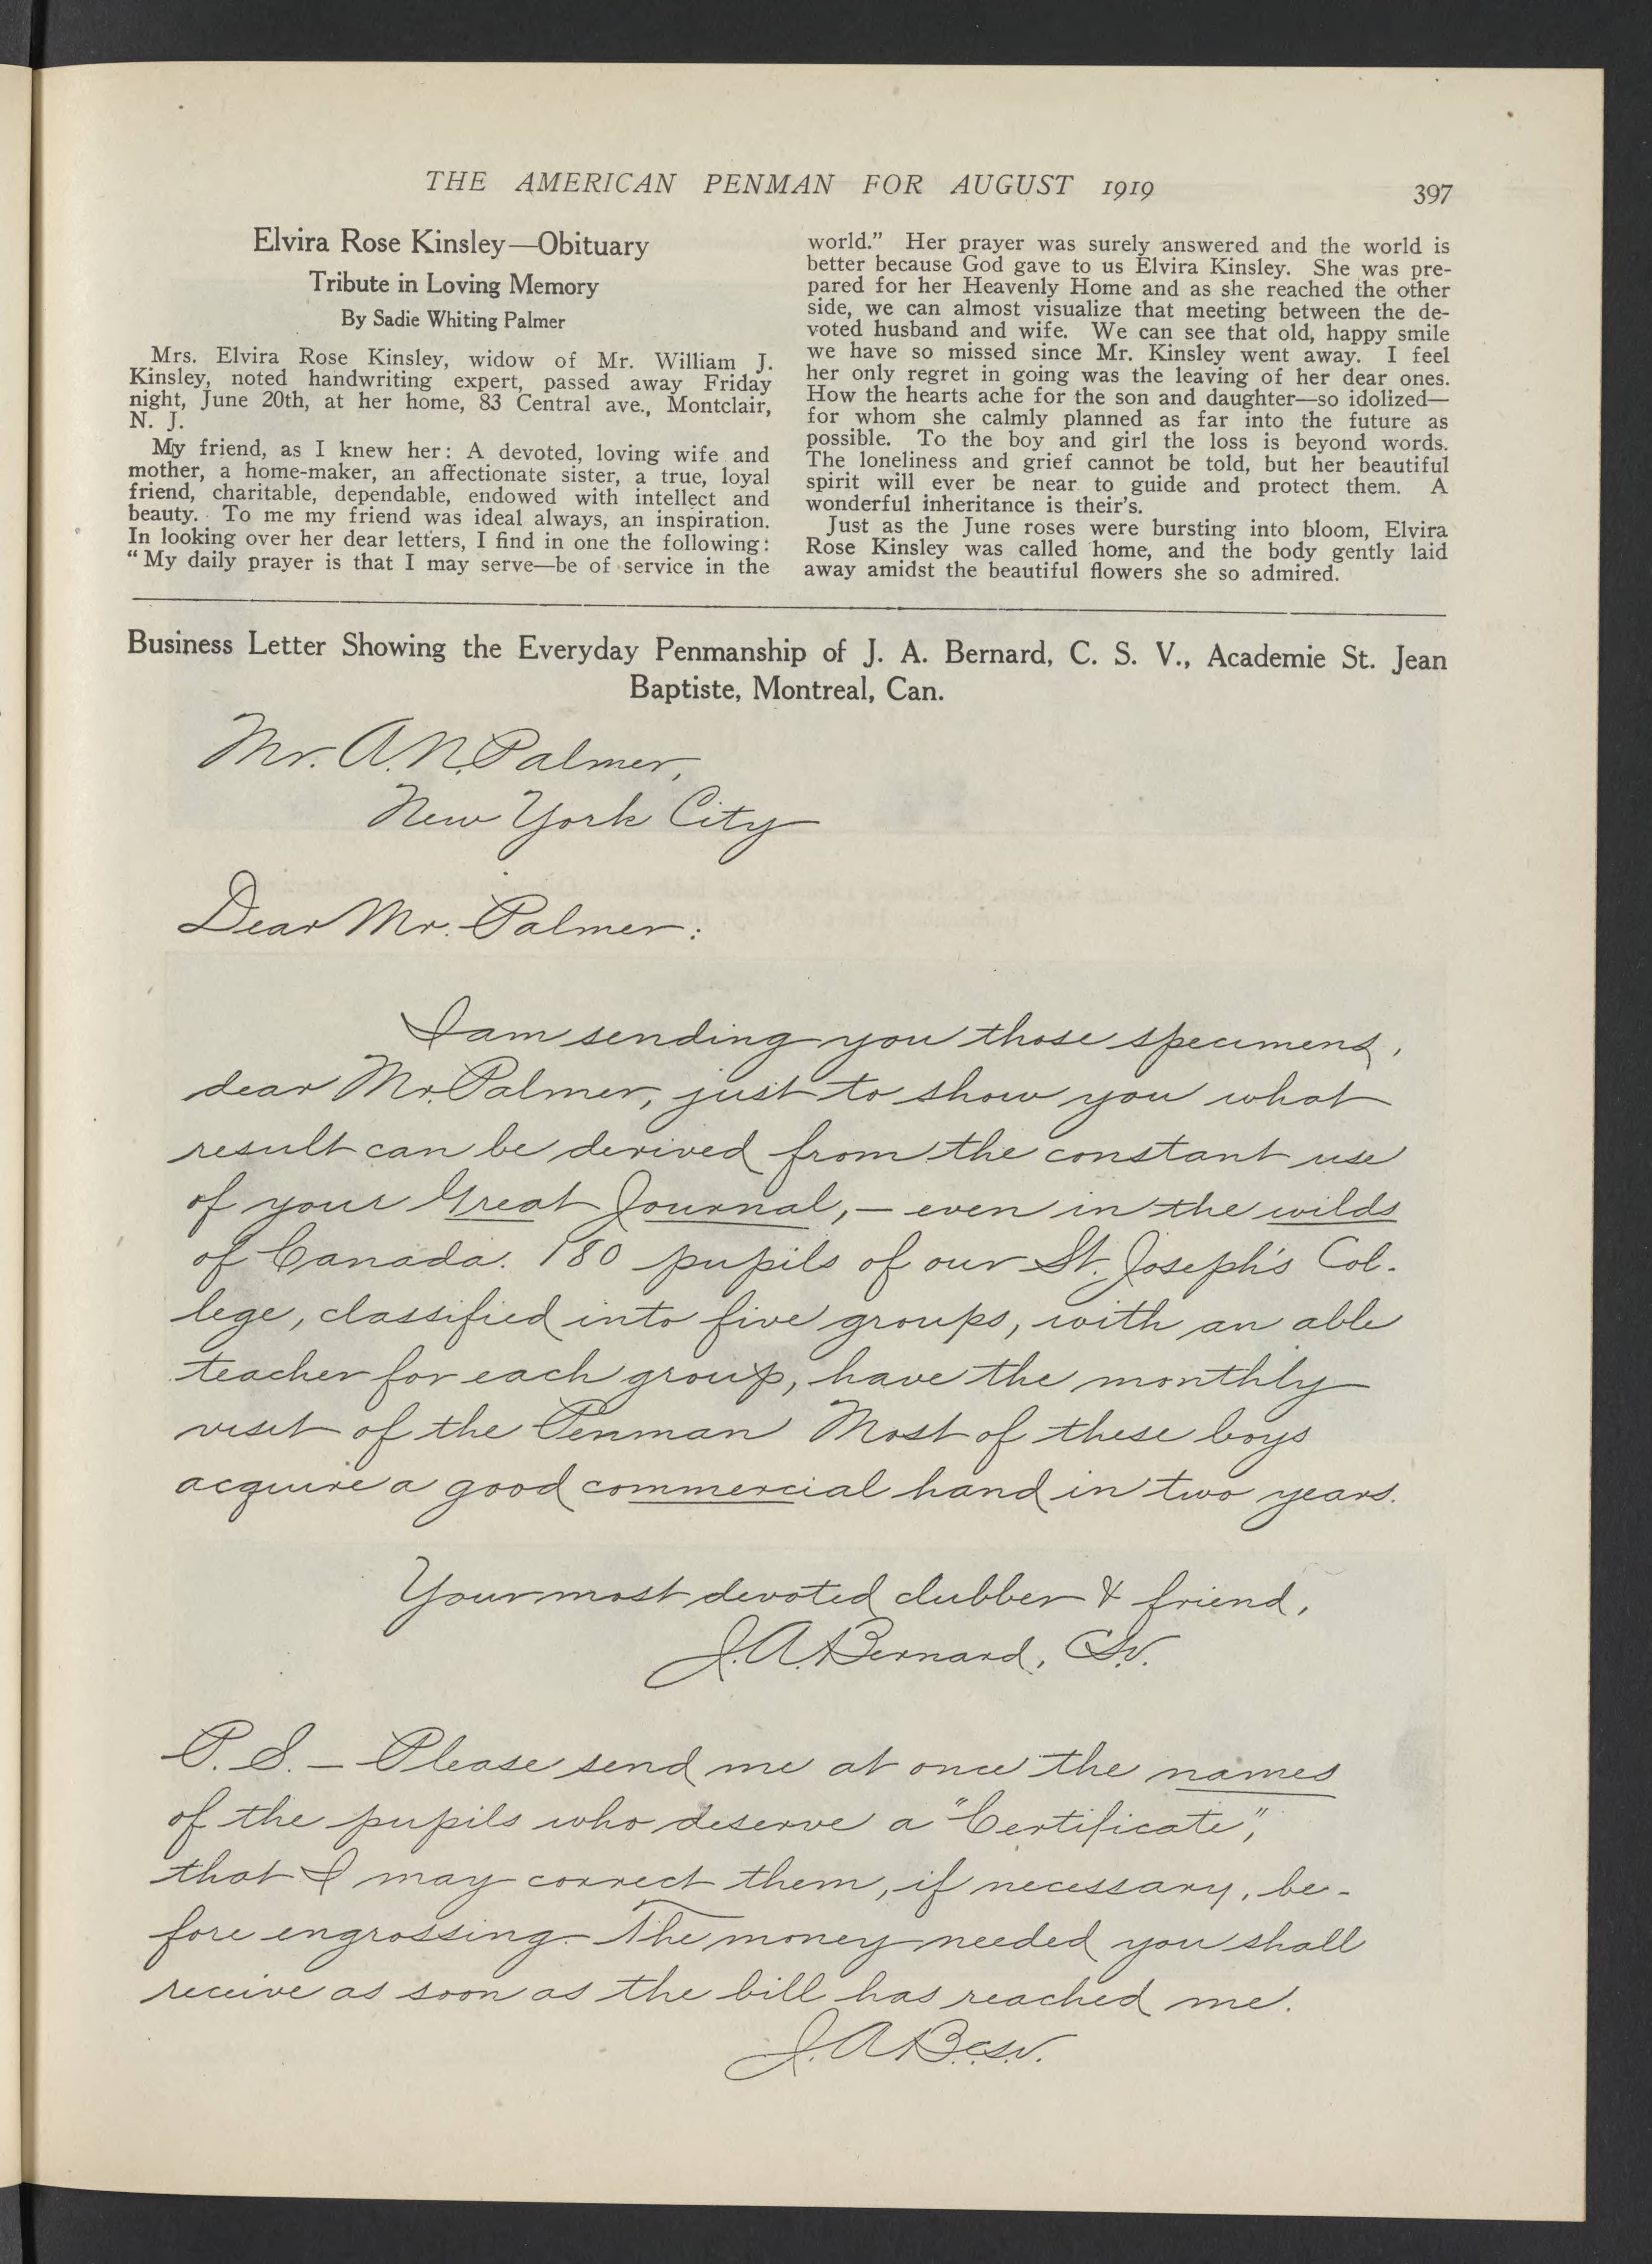 THE AMERICAN PENMAN FOR AUGUST 1919
397
Elvira Rose Kinsley—Obituary
Tribute in Loving Memory
By Sadie Whiting Palmer
Mrs. Elvira Rose Kinsley, widow of Mr. William J.
Kinsley, noted handwriting expert, passed away Friday
night, June 20th, at her home, 83 Central ave., Montclair,
N. J.
My friend, as I knew her: A devoted, loving wife and
mother, a home-maker, an affectionate sister, a true, loyal
friend, charitable, dependable, endowed with intellect and
beauty. To me my friend was ideal always, an inspiration.
In looking over her dear letters, I find in one the following:
“My daily prayer is that I may serve—be of service in the
world.” Her prayer was surely answered and the world is
better because God gave to us Elvira Kinsley. She was pre-
pared for her Heavenly Home and as she reached the other
side, we can almost visualize that meeting between the de-
voted husband and wife. We can see that old, happy smile
we have so missed since Mr. Kinsley went away. I feel
her only regret in going was the leaving of her dear ones.
How the hearts ache for the son and daughter—so idolized—
for whom she calmly planned as far into the future as
possible. To the boy and girl the loss is beyond words.
The loneliness and grief cannot be told, but her beautiful
spirit will ever be near to guide and protect them. A
wonderful inheritance is their's.
Just as the June roses were bursting into bloom, Elvira
Rose Kinsley was called home, and the body gently laid
away amidst the beautiful flowers she so admired.
Business Letter Showing the Everyday Penmanship of J. A. Bernard, C. S. V., Academie St. Jean
Baptiste, Montreal, Can.
Mr. A. N. Palmer,
New York City
Dear Mr. Palmer:
I am sending you those specimens,
dear Mr. Palmer, just to show you what
result can be derived from the constant use
of your Great Journal,— even in the wilds
of Canada. 180 pupils of our St. Joseph's Col-
lege, classified into five groups, with an able
teacher for each group, have the monthly
visit of the Penman Most of these boys
acquire a good commercial hand in two years.
Your most devoted clubber & friend,
J. A. Bernard, C.S.V.
P. S. — Please send me at once the names
of the pupils who deserve a "Certificate",
that I may correct them, if necessary, be-
fore engrossing. The money needed you shall
receive as soon as the bill has reached me.
J. A. B. c.s.v.